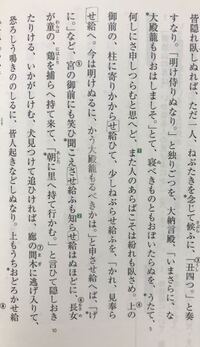 皆隠れ臥しぬれば、ただ一人、ねぶたきを念じて候ふに、「丑四つ。」と奏
すなり。「明け侍りぬなり。」と独りごつを、大納言殿、「いまさらに、な
大殿籠もりおはしましそ。」とて、寝べきものともおぼいたらぬを、うたて、
何しにさ申しつらむと思へど、また人のあらばこそは紛れも臥さめ。上の
御前の、柱に寄りかからせ給ひて、少しねぶらせ給ふを、「かれ、見奉ら
せ給へ。今は明けぬるに、かう大殿籠もるべきかは。」と申させ給へば、「げ
に。」など、宮の御前にも笑ひ聞こえさせ給ふも知らせ給はぬほどに、長女
が童の、鶏を捕らへ持て来て、「朝に里へ持て行かむ。」と言ひて隠しおき
たりける、いかがしけむ、犬見つけて追ひければ、廊の間木に逃げ入りて、
恐ろしう鳴きののしるに、皆人起きなどしぬなり。上もうちおどろかせ給